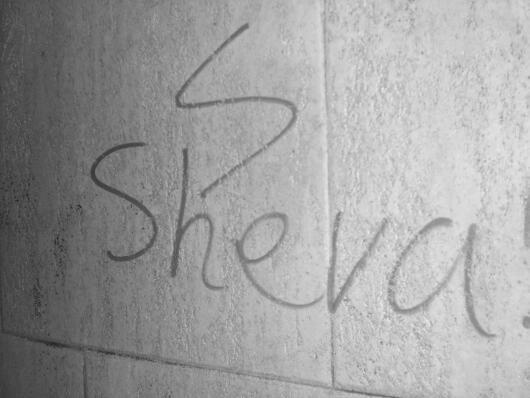 S
Sheva!